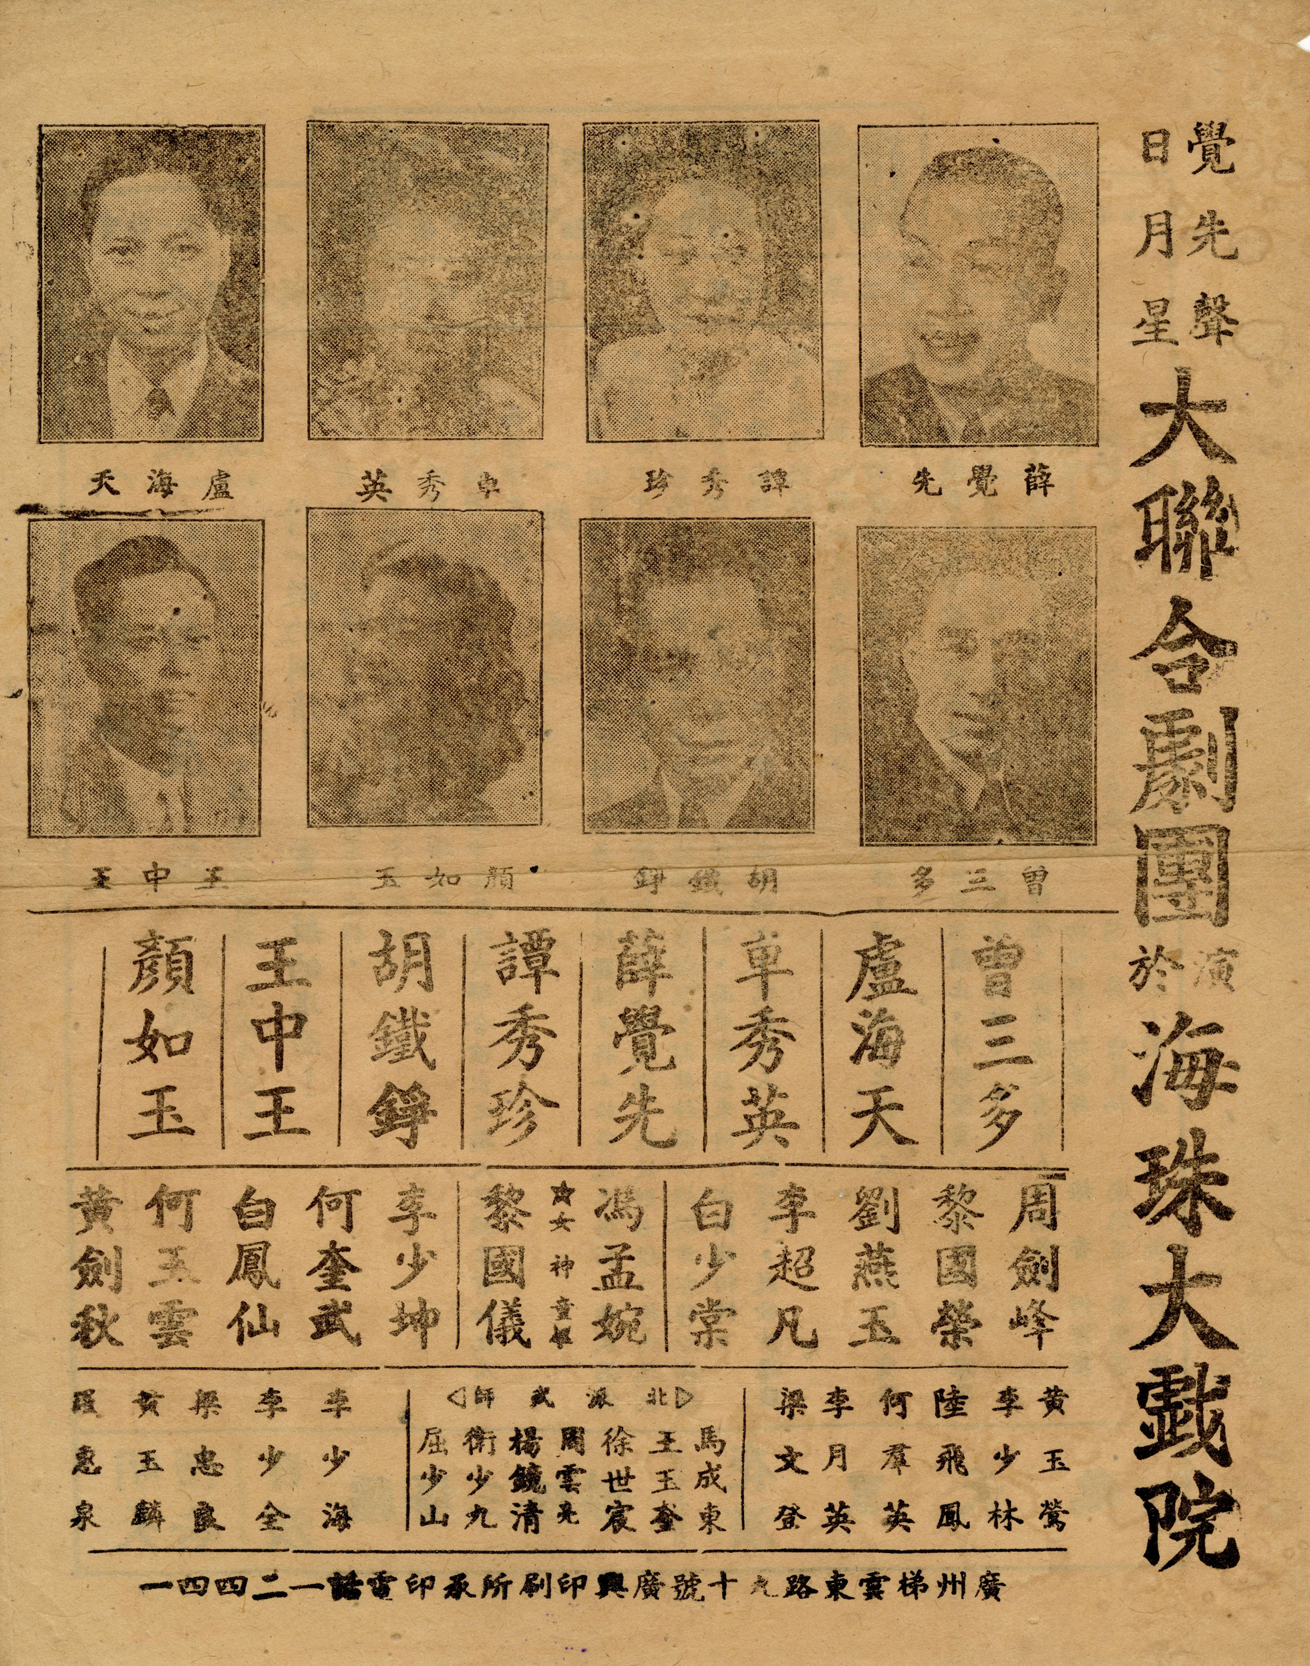 覺先聲
日月星
大聯合劇團
演於
海珠大戲院
薛覺先
譚秀珍
卓秀英
盧海天
曾三多
胡鐵錚
顏如玉
王中王
曾三多
盧海天
卓秀英
薛覺先
譚秀珍
胡鐵錚
王中王
顏如玉
周劍峰
黎國榮
劉燕玉
李超凡
白少棠
馮孟婉
★女神童
黎國儀
李少坤
何奎武
白鳳仙
何玉雲
黃劍秋
黃玉鶯
李少林
陸飛鳳
何羣英
李月英
梁文登
北派武師
馬成東
王玉奎
徐世宸
周雲亮
楊鏡清
衛少九
屈少山
李少海
李少全
梁忠良
黃玉麟
惠泉
廣州梯雲東路九十號廣興印刷所承印電話一二四四一